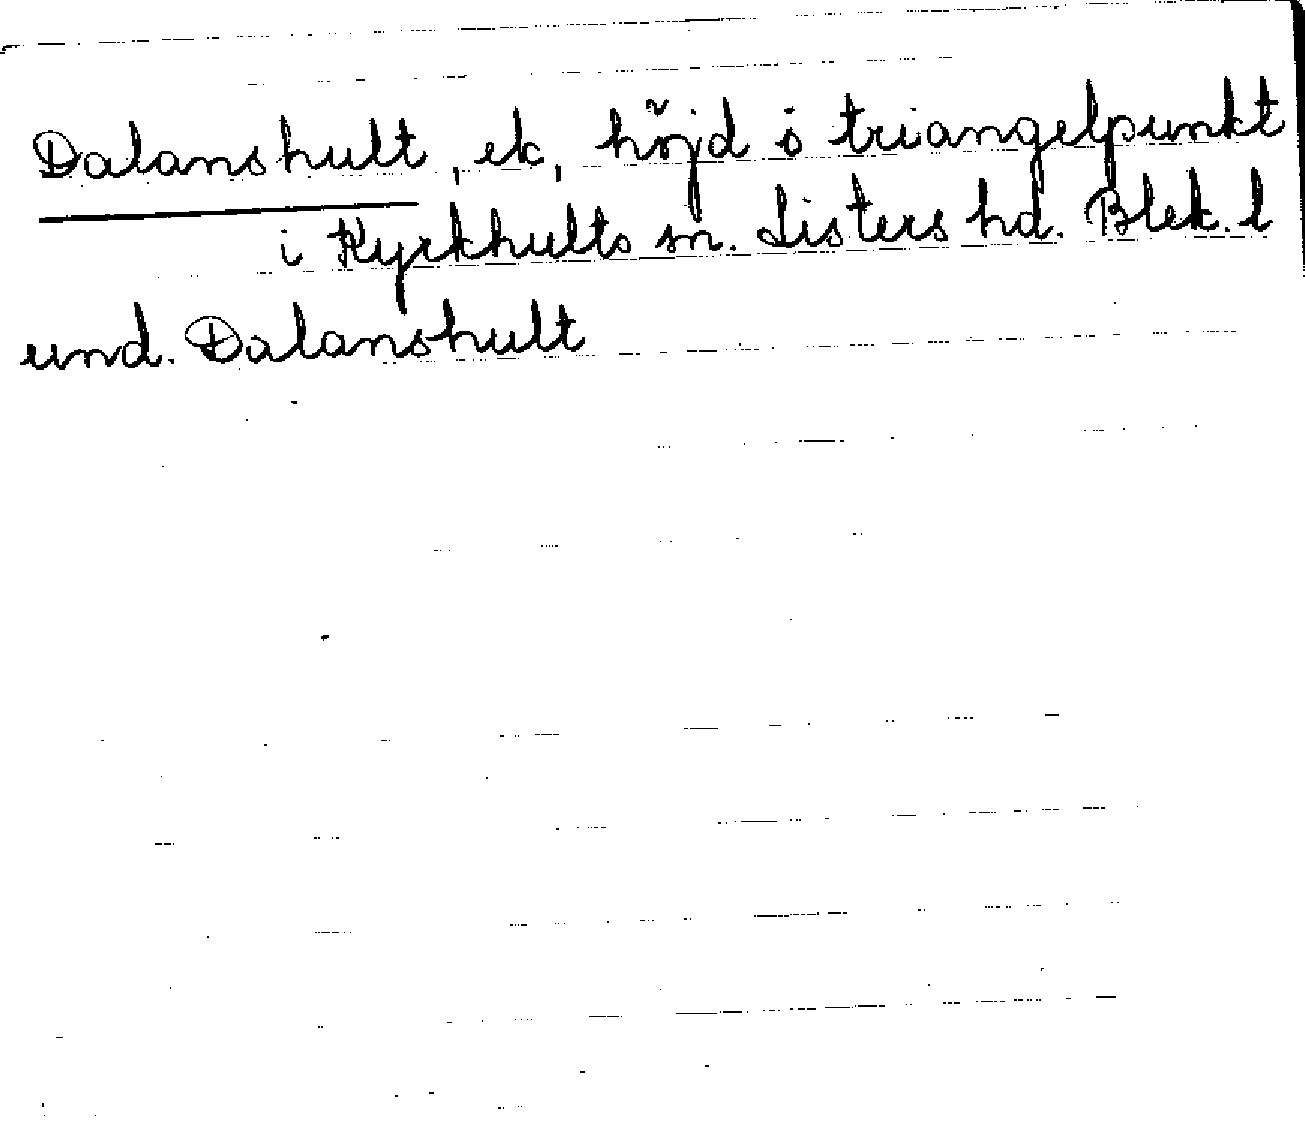 Dalanshult, ek, höjd o triangelpunkt
i Kyrkhults sn. Listers hd. Blek. l
und. Dalanshult